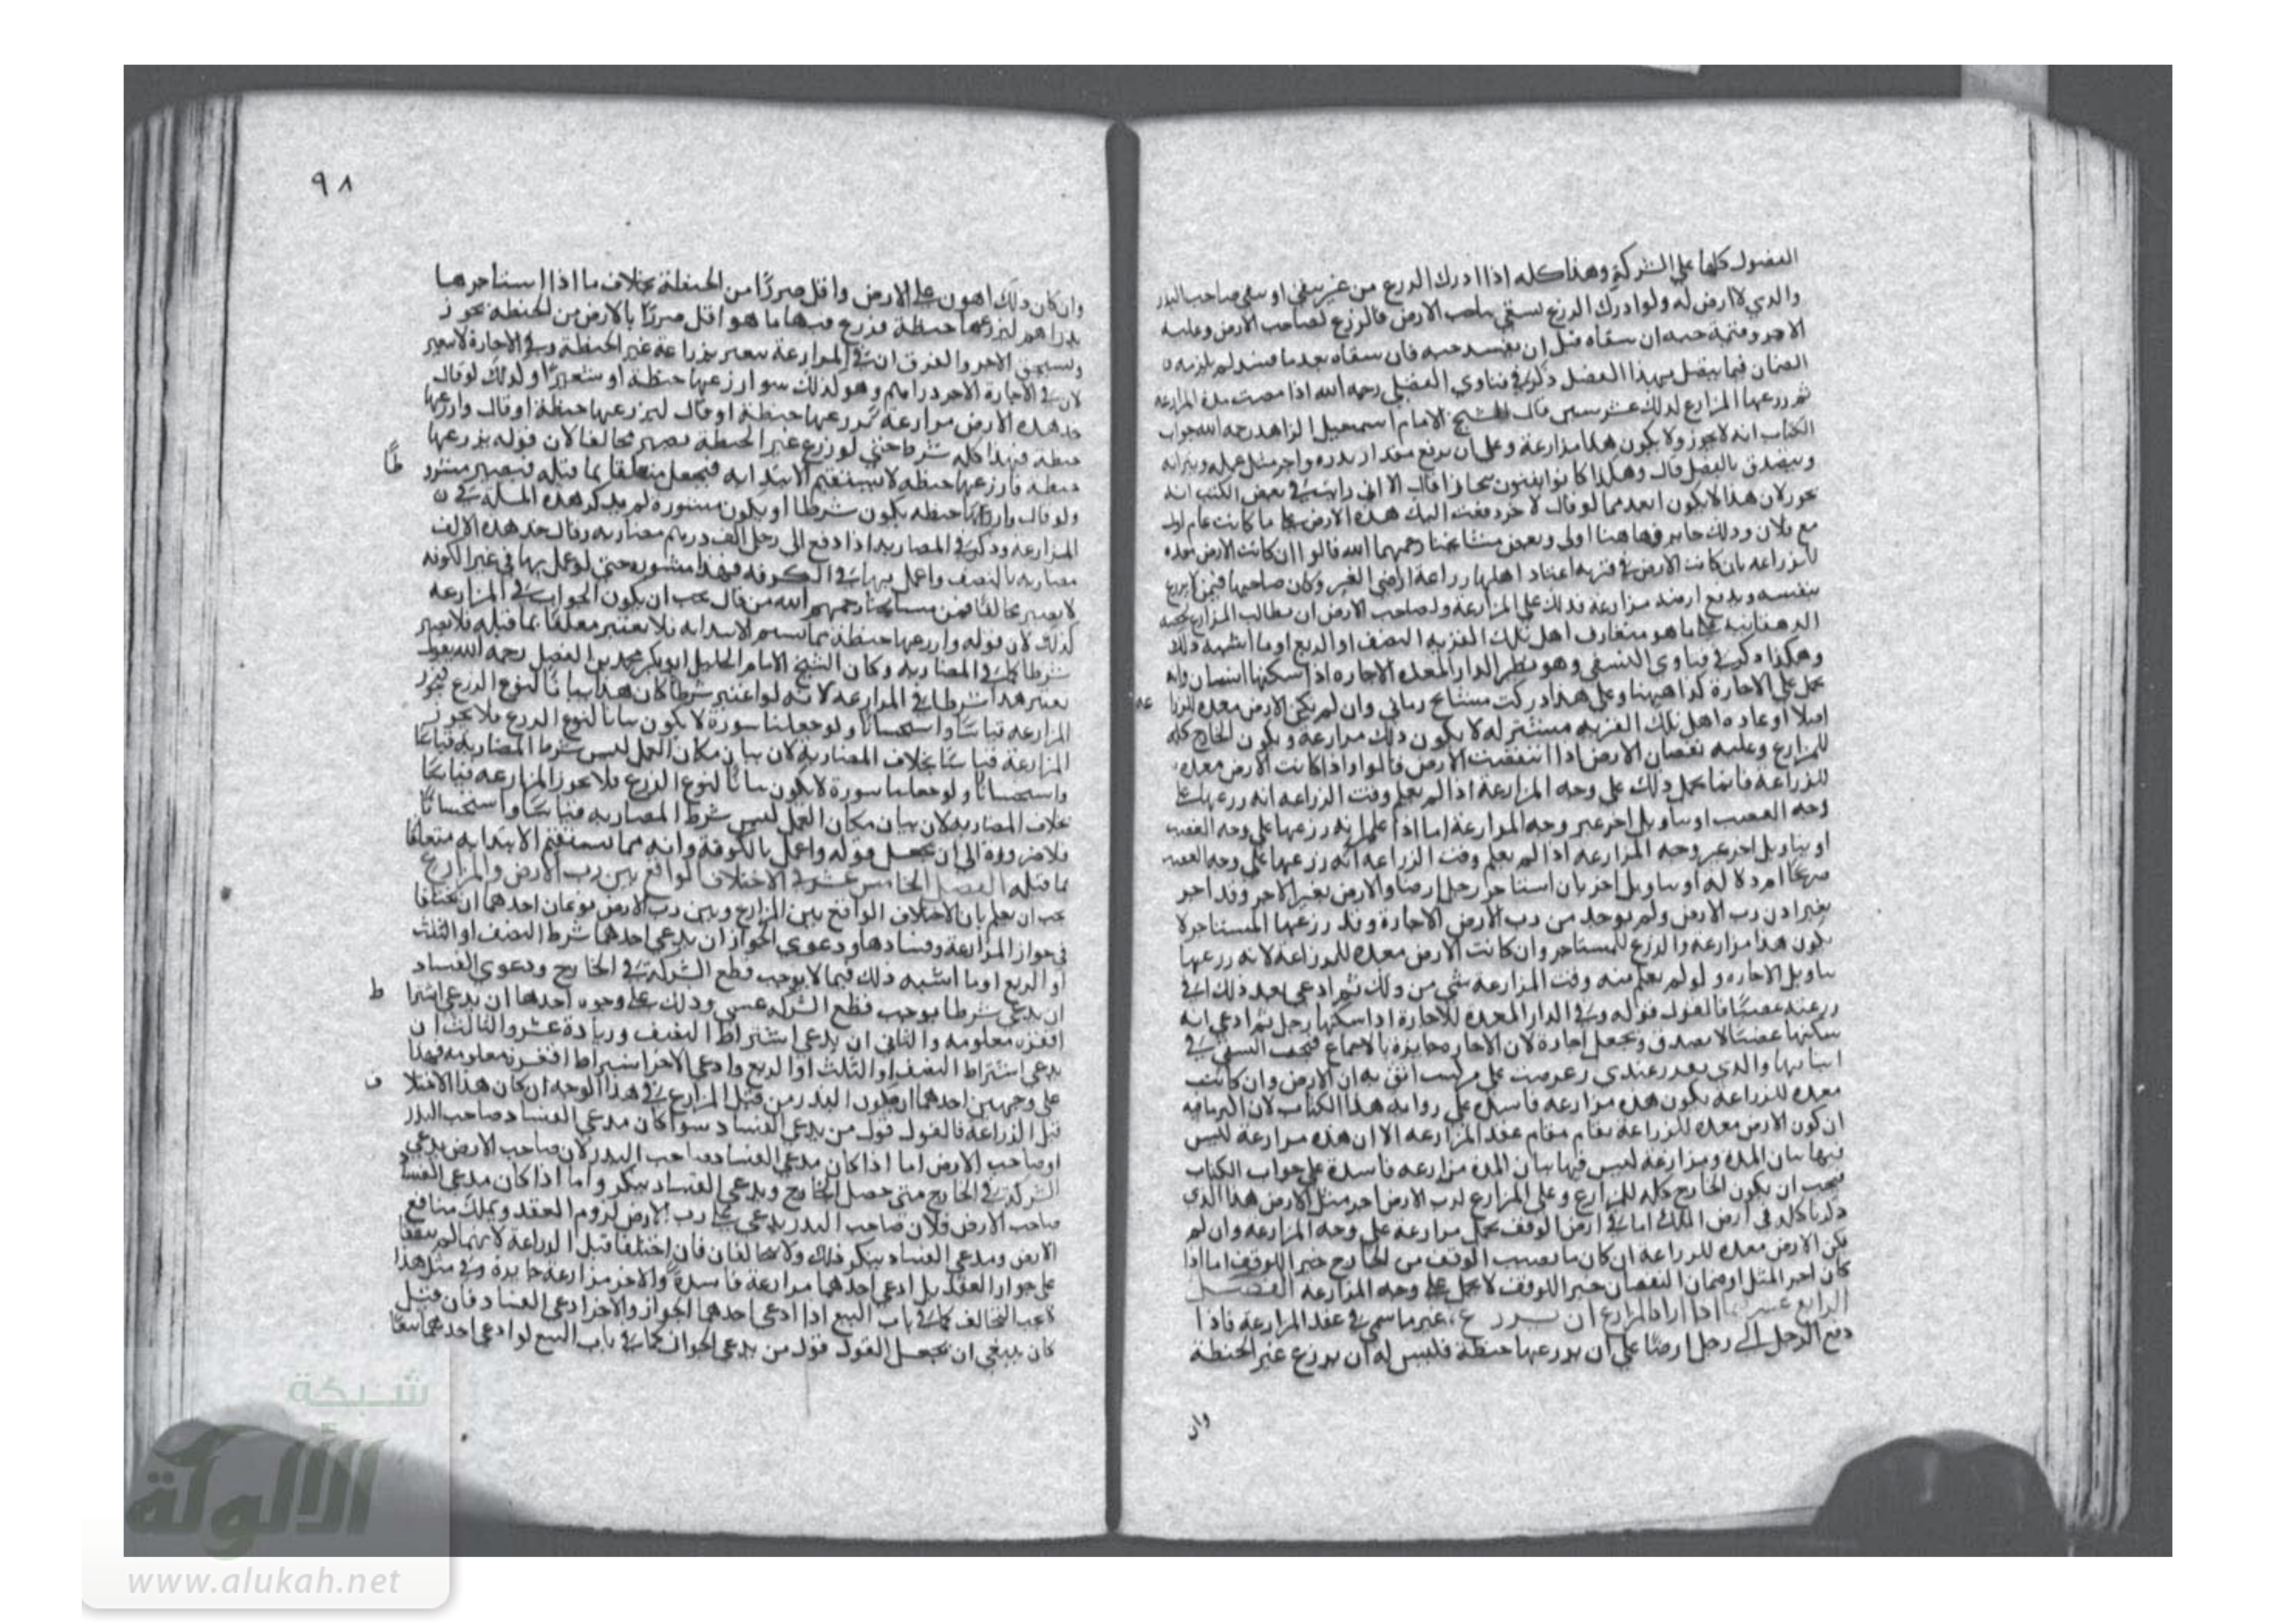 الفصول كلها على الشركة وهذا كله اذا ادرك الزرع من غير سقي او سقي صاحب البذر
والذي لا ارض له ولو ادرك الزرع بسقي صاحب الارض فالزرع لصاحب الارض وعليه
الاخر وقيمة حبه ان سقاه قبل ان يفسد حبه فان سقاه بعد ما فسد لم يلزمه
الضمان فيما يتصل بهذا الفصل ذكر في فتاوي الفضلي رحمه الله اذا مضت مدة المزارعة
ثم زرعها المزارع لذلك عشر سنين قال الشيخ الامام اسمعيل الزاهد رحمه الله جواب
الكتاب انه لا يجوز ولا يكون هذا مزارعة وعلى ان يرفع مقدار بذره واجر مثل عمله وثيرانه
ويتصدق بالفضل قال وهكذا كانوا يفتون ببخارا قال الا اني رايت في بعض الكتب انه
يجوز لان هذا لا يكون ابعد مما لو قال لاخر دفعت اليك هذه الارض على ما كانت عام اول
مع فلان وذلك جايز فهاهنا اولى وبعض مشايخنا رحمهما الله قالوا ان كانت الارض معده
للزراعه بان كانت الارض في قريه اعتاد اهلها زراعة اراضي الغير وكان صاحبها ممن لا يزرع
بنفسه ويدفع ارضه مزارعة فذلك على المزارعة ولصاحب الارض ان يطالب المزارع بحصه
الدهقانيه على ما هو متعارف اهل تلك القريه النصف او الربع او ما اشبه ذلك
وهكذا ذكر في فتاوى النسفي وهو نظير الدار المعده الاجاره اذا سكنها انسان وانه
يحمل على الاجارة كذا هيهنا وعلى هذا ادركت مشايخ زماني وان لم يكن الارض معده للزرا
اصلا او عاده اهل تلك القريه مشتركه لا يكون ذلك مزارعة ويكون الخارج كله
للمزارع وعليه نقصان الارض اذا انتقصت الارض قالوا واذا كانت الارض معده
للزراعة فانما يحمل ذلك على وجه المزارعة اذا لم يعلم وقت الزراعه انه زرعها على
وجه الغصب او بتاويل اخر غير وجه المزارعة اما اذا علم انه زرعها على وجه الغصب
او بتاويل اخر غير وجه المزارعه اذا لم يعلم وقت الزراعه انه زرعها على وجه الغصب
او بتاويل اخر بان استاجر رجل ارضا والارض بغير الاجر وقد اجر
بغير اذن رب الارض ولم يوجد من رب الارض الاجارة وقد زرعها المستاجر لا
يكون هذا مزارعة والزرع للمستاجر وان كانت الارض معده للمزراعة لانه زرعها
بتاويل الاجاره ولو لم يعلم منه وقت المزارعة شي من ذلك ثم ادعي بعد ذلك اني
زرعته غصبا فالقول قوله وفي الدار المعده للاجارة اذا سكنها رجل ثم ادعي انه
سكنها غصبا لا يصدق وتجعل اجارة لان الاجاره جايزة بالاجماع
معده للزراعة يكون هذه مزارعه فاسدة على رواية هذا الكتاب لان اكثر ما فيه
ان كون الارض معده للزراعة يقام مقام عقد المزارعه الا ان هذه مزارعة ليس
فيها بيان المده ومزارعة ليس فيها بيان المدة مزارعه فاسدة على جواب الكتاب
فيجب ان يكون الخارج كله للمزارع وعلى المزارع لرب الارض اجر مثل الارض هذا الذي
ذكرنا كله في ارض الملك اما في ارض الوقف يحمل مزارعة على وجه المزارعه وان لم
تكن الارض معده للزراعة ان كان ما يصيب الوقف من الخارج خير للوقف اما اذا
كان اجر المثل او ضمان النقصان خير للوقف لا يحمل على وجه المزارعه الفصل
الرابع عشر فيما اذا اراد المزارع ان يزرع غير ما سمي في عقد المزارعة فاذا
دفع الرجل الى رجل ارضا على ان يزرعها حنطة فليس له ان يزرع غير الحنطة
وان
٩٨
وان كان ذلك اهون على الارض واقل ضررا من الحنطة بخلاف ما اذا استاجرها
بدراهم ليزرعها حنطة فزرع فيها ما هو اقل ضررا بالارض من الحنطه يجوز
ويستحق الاجر والفرق ان في المزارعة يتغير بزراعة غير الحنطة وفي الاجارة لا يتغير
لان في الاجارة الاجر دراهم وهو لذلك سوا زرعها حنطة او شعيرا ولذلك لو قال
خذ هذه الارض مزارعة لتزرعها حنطة او قال ليزرعها حنطة او قال وازرعها
حنطه فهذا كله شرط حتي لو زرع غير الحنطة يصير مخالفا لان قوله يزرعها
حنطه فازرعها حنطه لا يستقيم الابتدابه فيجعل متعلقا بما قبله فيصير مشرو
ولو قال وازرعها حنطه يكون شرطا او يكون مشورة لم يذكر هذه المسلة في
المزارعه وذكر في المضاربه اذا دفع الى رجل الف درهم مضاربه وقال خذ هذه الالف
مضاربه بالنصف واعمل بها في الكوفه فهذا مشوره حتى لو عمل بها في غير الكوفه
لا يصير مخالفا فمن مشايخنا رحمهم الله من قال يجب ان يكون الجواب في المزارعه
كذلك لان قوله وازرعها حنطة مما يستقيم الابتدابه فلا يعتبر معلقا بما قبله فلا يصير
شرطا كما في المضاربه وكان الشيخ الامام الجليل ابو بكر محمد بن الفضل رحمه الله يقول
يعتبر هذا شرطا في المزارعه لانه لو اعتبر شرطا كان هذا بيانا لنوع الزرع فيجوز
المزارعه قياسا واستحسانا ولو جعلنا سورة لا يكون بيانا لنوع الزرع فلا يجوز
المزارعة قياسا بخلاف المضاربة لان بيان مكان العمل ليس شرط المضاربه قياسا
واستحسانا ولو جعلنا سورة لا يكون بيانا لنوع الزرع فلا يجوز المزارعه قياسا
بخلاف المضاربه لان بيان مكان العمل ليس شرط المضاربه قياسا واستحسانا
فلا ضرورة الى ان يجعل قوله واعمل بالكوفة وانه مما يستقيم الابتدابه متعلقا
بما قبله الفصل الخامس عشر في الاختلاف الواقع بين رب الارض والمزارع
يجب ان يعلم بان الاختلاف الواقع بين المزارع وبين رب الارض نوعان احدهما ان يختلفا
في جواز المزارعة وفسادها ودعوي الجواز ان يدعي احدهما شرط النصف او الثلث
او الربع او ما اشبه ذلك فيما لا يوجب قطع الشركة في الخارج ودعوي الفساد
ان يدعي شرطا يوجب قطع الشركه عسى وذلك على وجوه احدها ان يدعي اشترا
اقفزه معلومه والثاني ان يدعي اشتراط النصف وزيادة عشر والثالث ان
يدعي اشتراط النصف او الثلث او الربع وادعى الاخر اشتراط اقفزه معلومه فهذا
على وجهين احدهما ان يكون البذر من قبل المزارع في هذا الوجه ان كان هذا الاختلا
قبل الزراعة فالقول قول من يدعي الفساد سوا كان مدعي الفساد صاحب البذر
او صاحب الارض اما اذا كان مدعي الفساد صاحب البذر لان صاحب الارض يدعي
الشركة في الخارج متى حصل الخارج ويدعي الفساد ينكر واما اذا كان مدعي الفساد
صاحب الارض فلان صاحب البذر يدعي على رب الارض لزوم العقد ويملك منافع
الارض ومدعي الفساد ينكر ذلك ولا يتحالفان فان اختلفا قبل الزراعة لانهما لم يتفقا
على جواز العقد بل ادعي احدهما مزارعة فاسدة والاخر مزارعة جايزة وفي مثل هذا
لا يجب التحالف كما في باب البيع اذا ادعي احدهما الجواز والاخر ادعي الفساد فان قيل
كان ينبغي ان يجعل القول قول من يدعي الجواز كما في باب البيع لو ادعى احدهما بيعا
شبكة
الألوكة
www.alukah.net